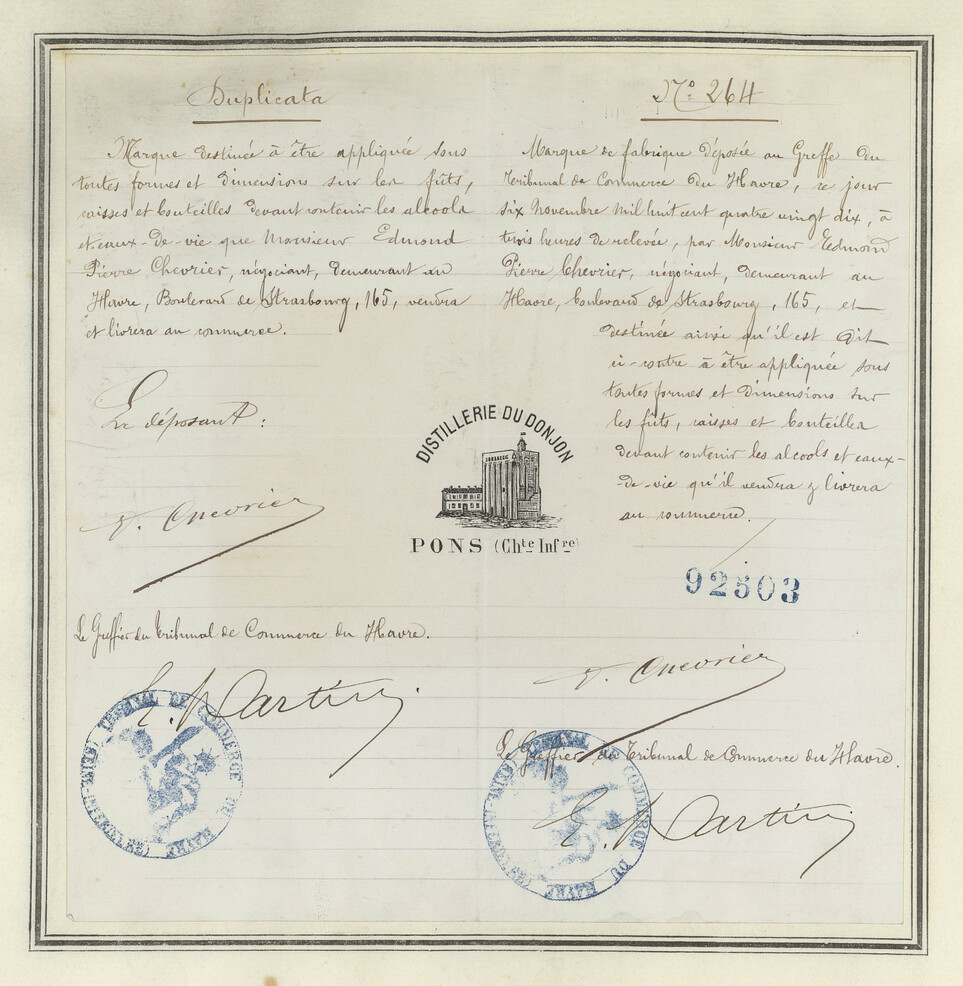 Duplicata
Marque destinée à être appliquée sous
toutes formes et dimensions sur les fûts,
caisses et bouteilles devant contenir les alcools
et eaux-de-vie que Monsieur Edmond
Pierre Chevrier, négociant, demeurant au
Havre, Boulevard de Strasbourg, 165, vendra
et livrera au commerce.
Le déposant :
E. Chevrier
Le Greffier du Tribunal de Commerce du Havre.
E. Martin
TRIBUNAL DE COMMERCE DU HAVRE (SEINE-INFÉRIEURE)
DISTILLERIE DU DONJON
PONS (Chte Infre)
No. 264
Marque de fabrique déposée au Greffe du
Tribunal de Commerce du Havre, ce jour
six novembre mil huit cent quatre vingt dix, à
trois heures de relevée, par Monsieur Edmond
Pierre Chevrier, négociant, demeurant au
Havre, boulevard de Strasbourg, 165, et
destinée ainsi qu'il est dit
ci-contre à être appliquée sous
toutes formes et dimensions sur
les fûts, caisses et bouteilles
devant contenir les alcools et eaux-
-de-vie qu'il vendra & livrera
au commerce.
92503
E. Chevrier
Le Greffier du Tribunal de Commerce du Havre.
E. Martin
TRIBUNAL DE COMMERCE DU HAVRE (SEINE-INFÉRIEURE)